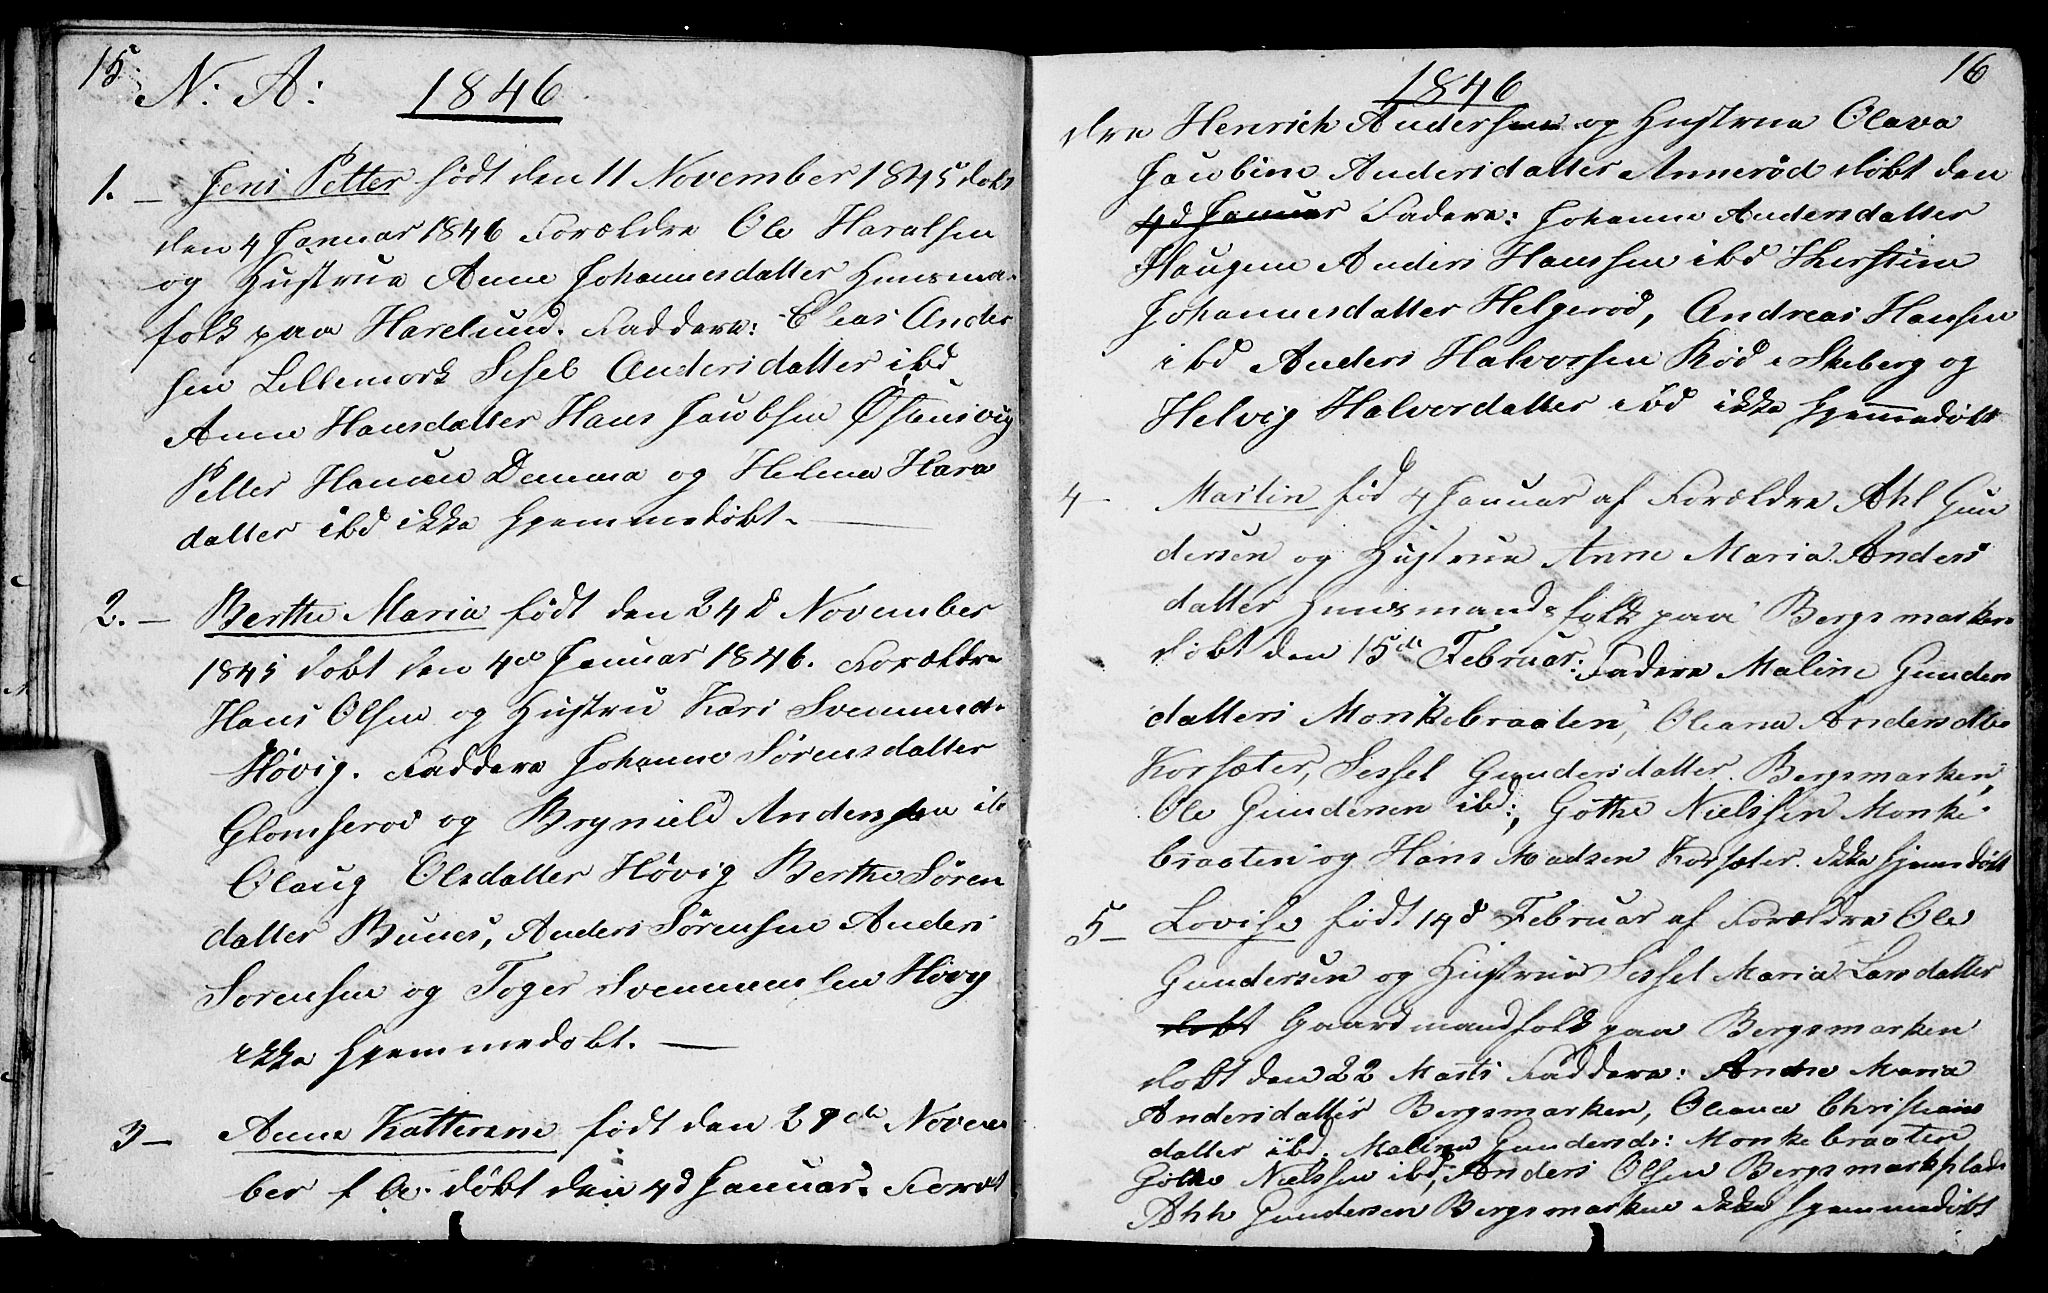 15
N: A:
1846
1. – Jens Petter født den 11 November 1845 døbt
den 4 Januar 1846 Forældre Ole Haralsen
og Hustrue Anne Johannesdatter Huusma-
folk paa Harelund. Faddere: Elias Ander
sen Lillemork Sesel Andersdatter ibd
Anne Hansdatter Hans Jacobsen Østensvig
Petter Hansen Damma og Helena Hara
datter ibd ikke hjemmedøbt. —
2. – Berthe Maria født den 24d November
1845 døbt den 4de Januar 1846. Forældre
Hans Olsen og Hustru Kari Svenunds-
Høvig. Faddere Johanne Sørensdatter
Glomserød og Bryniild Andersen ib
Olaug Olsdatter Høvig Berthe Søren
datter Buues, Anders Sørensen Anders
Sorensen og Toger Svennumsen Høvig
ikke hjemmedøbt. —
3 – Anne Katterine født den 29de Novem
ber f A. døbt den 4d Januar. Foræl
16
1846
dre Henrich Andersen og Hustrue Olava
Jacobine Andersdatter Annerød døbt den
4d Januar Fadere: Johanne Andersdatter
Haugene Anders Hanssen ibd Therstine
Johannesdatter Helgerød, Andreas Hansen
ibd Anders Halvorsen Rød i Skeberg og
Helvig Halvordatter ibd ikke hjemmedøbt
4 – Martin fød 4 Januar af Forældre Ahl Gun
dersen og Hustrue Anne Maria Anders
datter Huusmandsfolk paa Bergsmarken
døbt den 15de Februar: Fadere Maline Gunders
datters Monkebraaten, Oleana Andersdtr
Korsæter, Sessel Gundersdatter Bergsmarken,
Ole Gundersen ibd:, Gøthe Nielssen Monke-
braaten og Hans Madsen Korsæter. Ikke hjemdøbt
5 – Lovise født 14d Februar af Forældre Ole
Gundersen og Hustrue Sessel Maria Larsdatter
døbt Gaardmandfolk paa Bergsmarken
døbt den 22 Marts Faddere: Andre Maria
Andersdatter Bergsmarken, Oleana Christians
datter ibd. Maline Gundersd: Monkebraaten
Gøthe Nielssen ibd, Anders Olsen Bergsmarkplads
Ahl Gundersen Bergsmarken Ikke hjemmedøbt